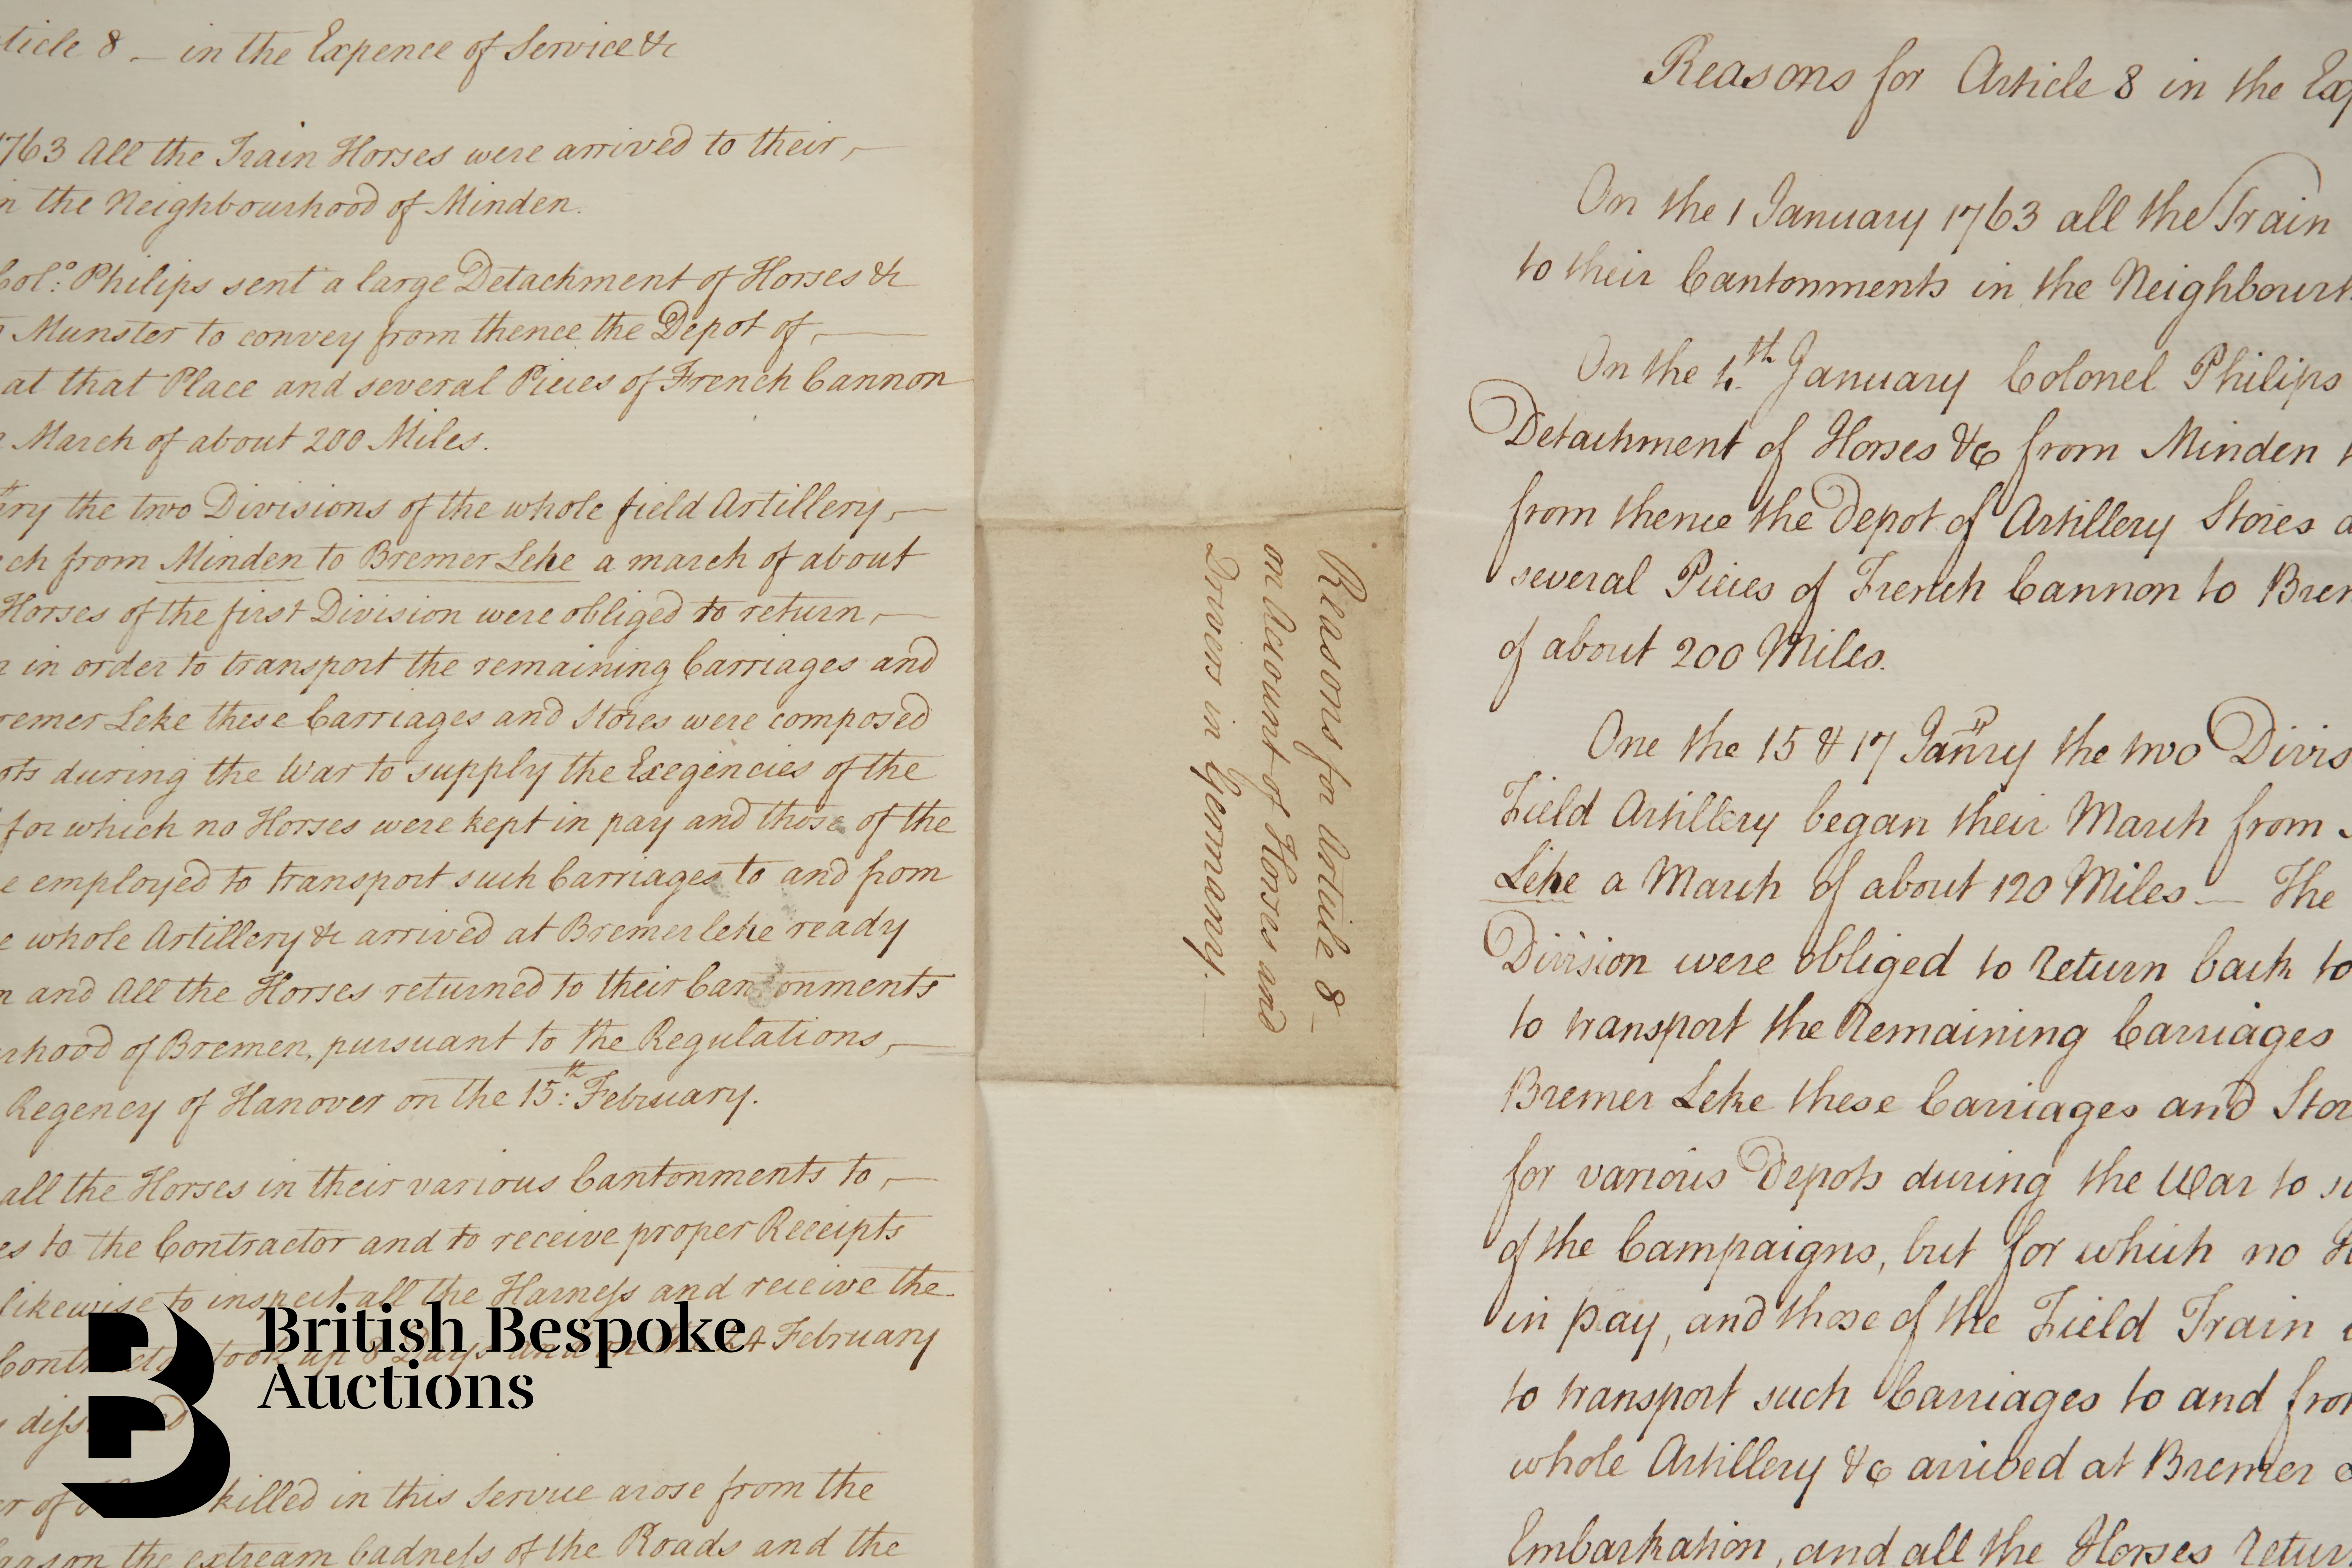 ticle 8 - in the Expence of Service &c
1763 All the Train Horses were arrived to their,
n the Neighbourhood of Minden.
Col:o Philips sent a large Detachment of Horses &c
Munster to convey from thence the Depot of,
at that Place and several Pieces of French Cannon
March of about 200 Miles.
ry the two Divisions of the whole field Artillery,
ch from Minden to Bremer Leke a march of about
Horses of the first Division were obliged to return,
in order to transport the remaining Carriages and
remer Leke these Carriages and Stores were composed
ots during the War to supply the Exegencies of the
for which no Horses were kept in pay and those of the
e employed to transport such Carriages to and from
e whole Artillery &c arrived at Bremer leke ready
n and All the Horses returned to their Cantonments
rhood of Bremen, pursuant to the Regulations,
Regency of Hanover on the 15:th February.
all the Horses in their various Cantonments to,
es to the Contractor and to receive proper Receipts
likewise to inspect all the Harness and receive the
took up 8 Days and on the 24 February
killed in this Service arose from the
the extream badness of the Roads and the
Reasons for Article 8
on Account of Horses and
Drivers in Germany.
Reasons for Article 8 in the Exp
On the 1 January 1763 all the Train
to their Cantonments in the Neighbourh
On the 4.th January Colonel Philips
Detachment of Horses &c from Minden t
from thence the Depot of Artillery Stores a
several Pieces of French Cannon to Brem
of about 200 Miles.
One the 15 & 17 Janry the two Divis
Field Artillery began their March from
Leke a March of about 120 Miles - The
Division were obliged to return back to
to transport the Remaining Carriages
Bremer Leke these Carriages and Stor
for various Depots during the War to su
of the Campaigns, but for which no H
in pay, and those of the Field Train
to transport such Carriages to and from
whole Artillery &c arrived at Bremer L
Embarkation, and all the Horses retur
British Bespoke
Auctions